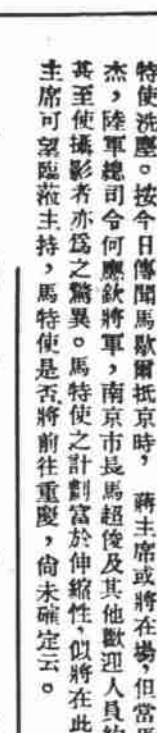 特使洗塵。按今日傳聞馬歇爾抵京時，蔣主席或將在場，但當馬
杰，陸軍總司令何應欽將軍，南京市長馬超俊及其他歡迎人員
甚至使攝影者亦爲之驚異。馬特使之計劃富於伸縮性，似將在此
主席可望臨蒞主持，馬特使是否將前往重慶，尙未確定云。